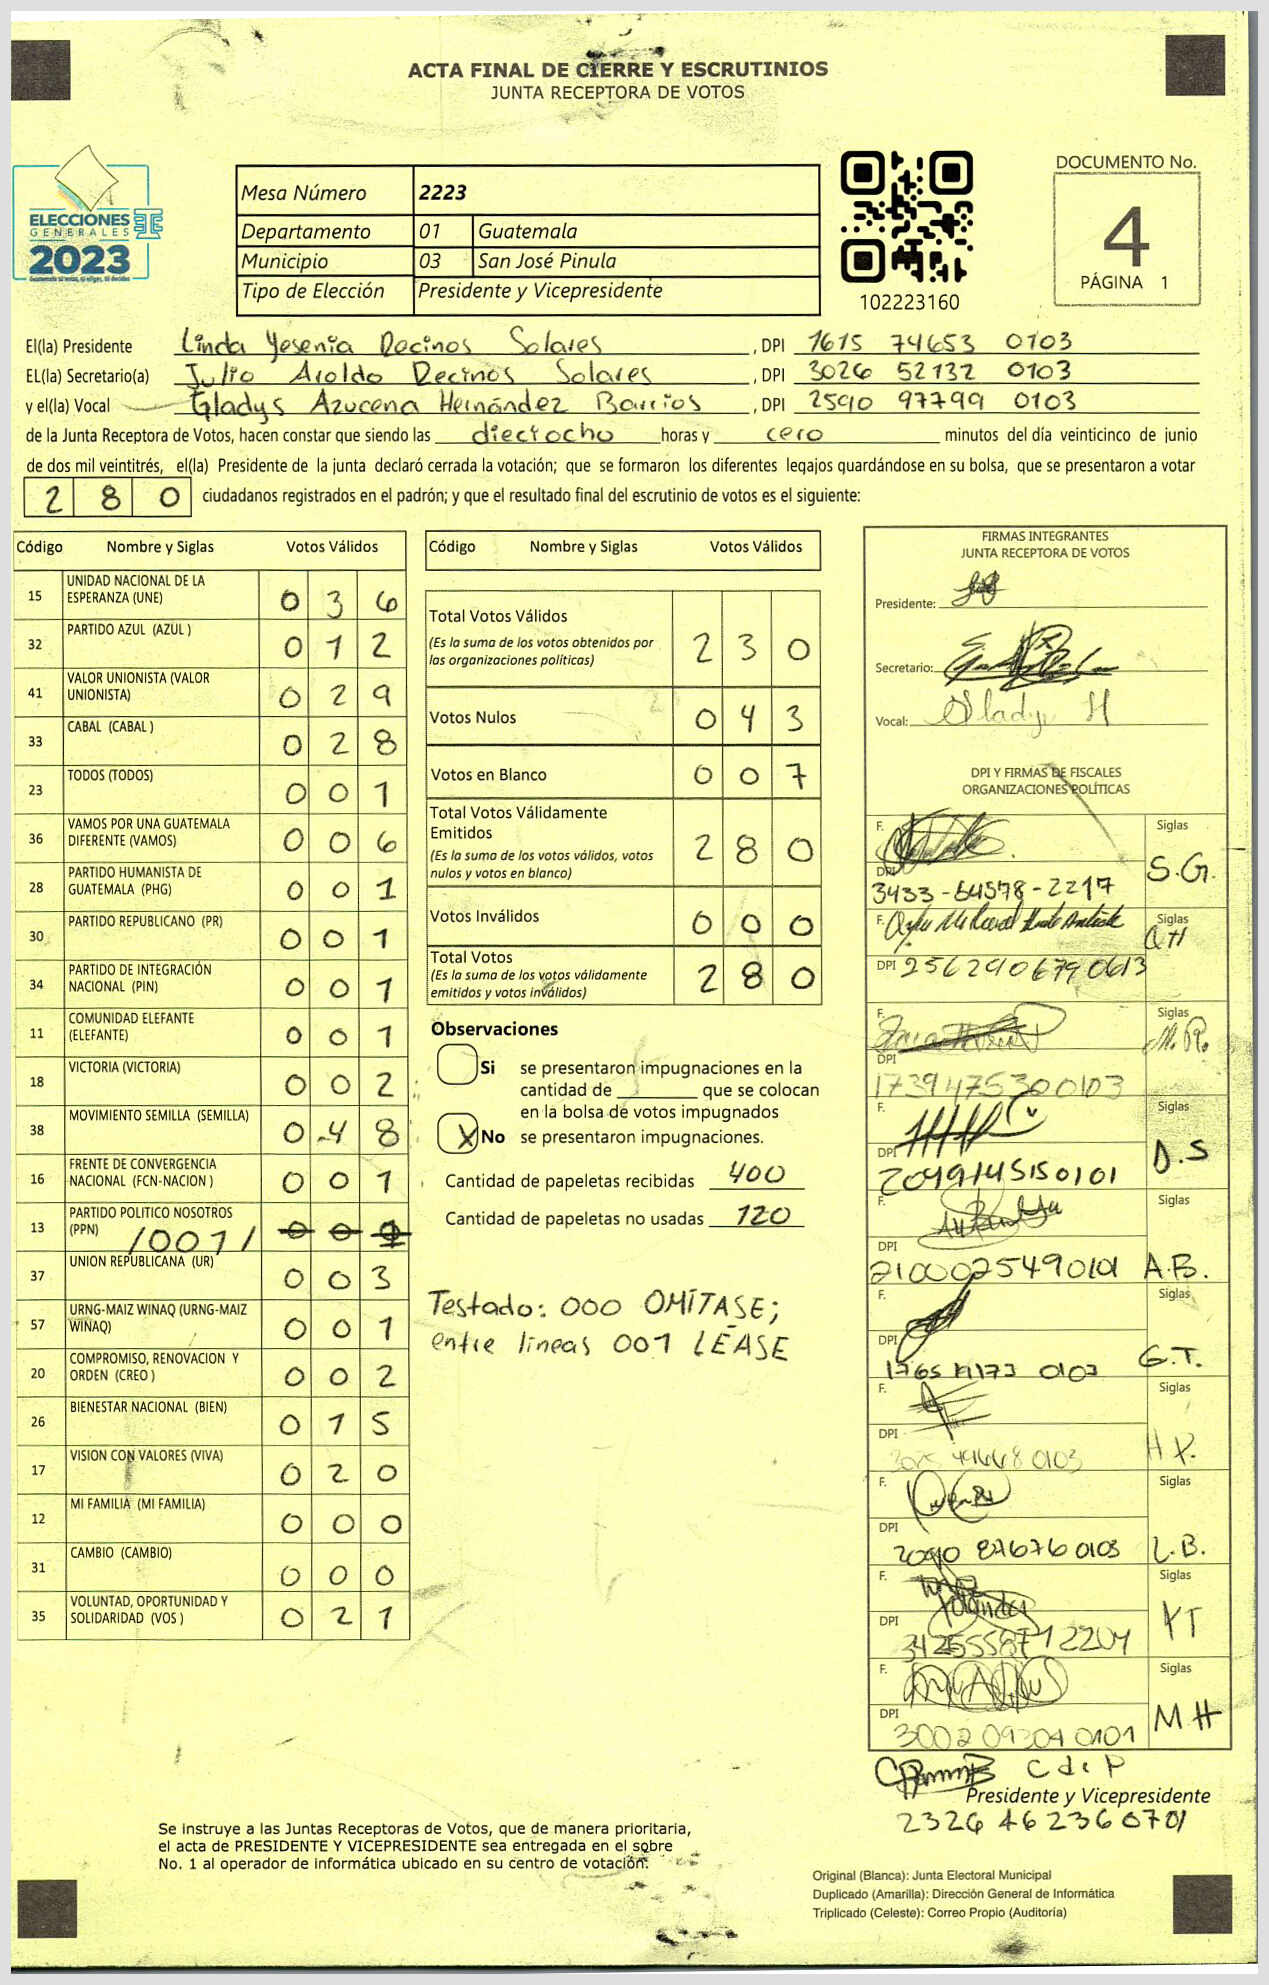 ACTA FINAL DE CIERRE Y ESCRUTINIOS
JUNTA RECEPTORA DE VOTOS
ELECCIONES
GENERALES
2023
Mesa Número 2223
Departamento 01 Guatemala
Municipio 03 San José Pinula
Tipo de Elección Presidente y Vicepresidente
102223160
DOCUMENTO No.
4
PÁGINA 1
El(la) Presidente Linda Yesenia Recinos Solares , DPI 1615 74653 0103
EL(la) Secretario(a) Julio Aroldo Recinos Solares , DPI 3026 52132 0103
y el(la) Vocal Gladys Azucena Hernández Barrios , DPI 2590 97799 0103
de la Junta Receptora de Votos, hacen constar que siendo las dieciocho horas y cero minutos del día veinticinco de junio
de dos mil veintitrés, el(la) Presidente de la junta declaró cerrada la votación; que se formaron los diferentes legajos guardándose en su bolsa, que se presentaron a votar
2 8 0 ciudadanos registrados en el padrón; y que el resultado final del escrutinio de votos es el siguiente:
Código Nombre y Siglas Votos Válidos
15 UNIDAD NACIONAL DE LA ESPERANZA (UNE) 0 3 6
32 PARTIDO AZUL (AZUL ) 0 1 2
41 VALOR UNIONISTA (VALOR UNIONISTA) 0 2 9
33 CABAL (CABAL ) 0 2 8
23 TODOS (TODOS) 0 0 1
36 VAMOS POR UNA GUATEMALA DIFERENTE (VAMOS) 0 0 6
28 PARTIDO HUMANISTA DE GUATEMALA (PHG) 0 0 1
30 PARTIDO REPUBLICANO (PR) 0 0 1
34 PARTIDO DE INTEGRACIÓN NACIONAL (PIN) 0 0 1
11 COMUNIDAD ELEFANTE (ELEFANTE) 0 0 1
18 VICTORIA (VICTORIA) 0 0 2
38 MOVIMIENTO SEMILLA (SEMILLA) 0 4 8
16 FRENTE DE CONVERGENCIA NACIONAL (FCN-NACION ) 0 0 1
13 PARTIDO POLITICO NOSOTROS (PPN) /001/
37 UNION REPUBLICANA (UR) 0 0 3
57 URNG-MAIZ WINAQ (URNG-MAIZ WINAQ) 0 0 1
20 COMPROMISO, RENOVACION Y ORDEN (CREO ) 0 0 2
26 BIENESTAR NACIONAL (BIEN) 0 1 5
17 VISION CON VALORES (VIVA) 0 2 0
12 MI FAMILIA (MI FAMILIA) 0 0 0
31 CAMBIO (CAMBIO) 0 0 0
35 VOLUNTAD, OPORTUNIDAD Y SOLIDARIDAD (VOS ) 0 2 1
Código Nombre y Siglas Votos Válidos
Total Votos Válidos 2 3 0
(Es la suma de los votos obtenidos por
las organizaciones políticas)
Votos Nulos 0 4 3
Votos en Blanco 0 0 7
Total Votos Válidamente
Emitidos 2 8 0
(Es la suma de los votos válidos, votos
nulos y votos en blanco)
Votos Inválidos 0 0 0
Total Votos 2 8 0
(Es la suma de los votos válidamente
emitidos y votos inválidos)
Observaciones
Si se presentaron impugnaciones en la
cantidad de ________ que se colocan
en la bolsa de votos impugnados
X No se presentaron impugnaciones.
Cantidad de papeletas recibidas 400
Cantidad de papeletas no usadas 120
Testado: 000 OMÍTASE;
entre lineas 001 LÉASE
FIRMAS INTEGRANTES
JUNTA RECEPTORA DE VOTOS
Presidente:
Secretario:
Vocal: Gladys H
DPI Y FIRMAS DE FISCALES
ORGANIZACIONES POLÍTICAS
F. Siglas S.G.
DPI 3433-64578-2217
F. Siglas QH
DPI 2562906790613
F. Siglas M.R.
DPI 1739475300103
F. Siglas D.S
DPI 2049914515 0101
F. Siglas
DPI 2100025490101 A.B.
F. Siglas
DPI G.T.
F. Siglas
DPI H P.
F. Siglas
DPI 87676 0103 L.B.
F. Siglas YT
DPI 3425558712204
F. Siglas
DPI 3002 09304 0101 MH
C d P
Presidente y Vicepresidente
2326 46236 0701
Se instruye a las Juntas Receptoras de Votos, que de manera prioritaria,
el acta de PRESIDENTE Y VICEPRESIDENTE sea entregada en el sobre
No. 1 al operador de informática ubicado en su centro de votación.
Original (Blanca): Junta Electoral Municipal
Duplicado (Amarilla): Dirección General de Informática
Triplicado (Celeste): Correo Propio (Auditoría)